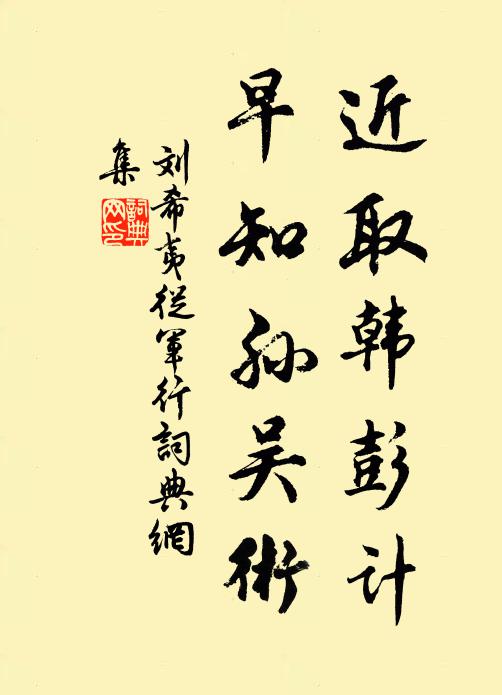 近取韩彭计
早知孙吴術
刘希夷從軍行詞典網
集
詞典
网印